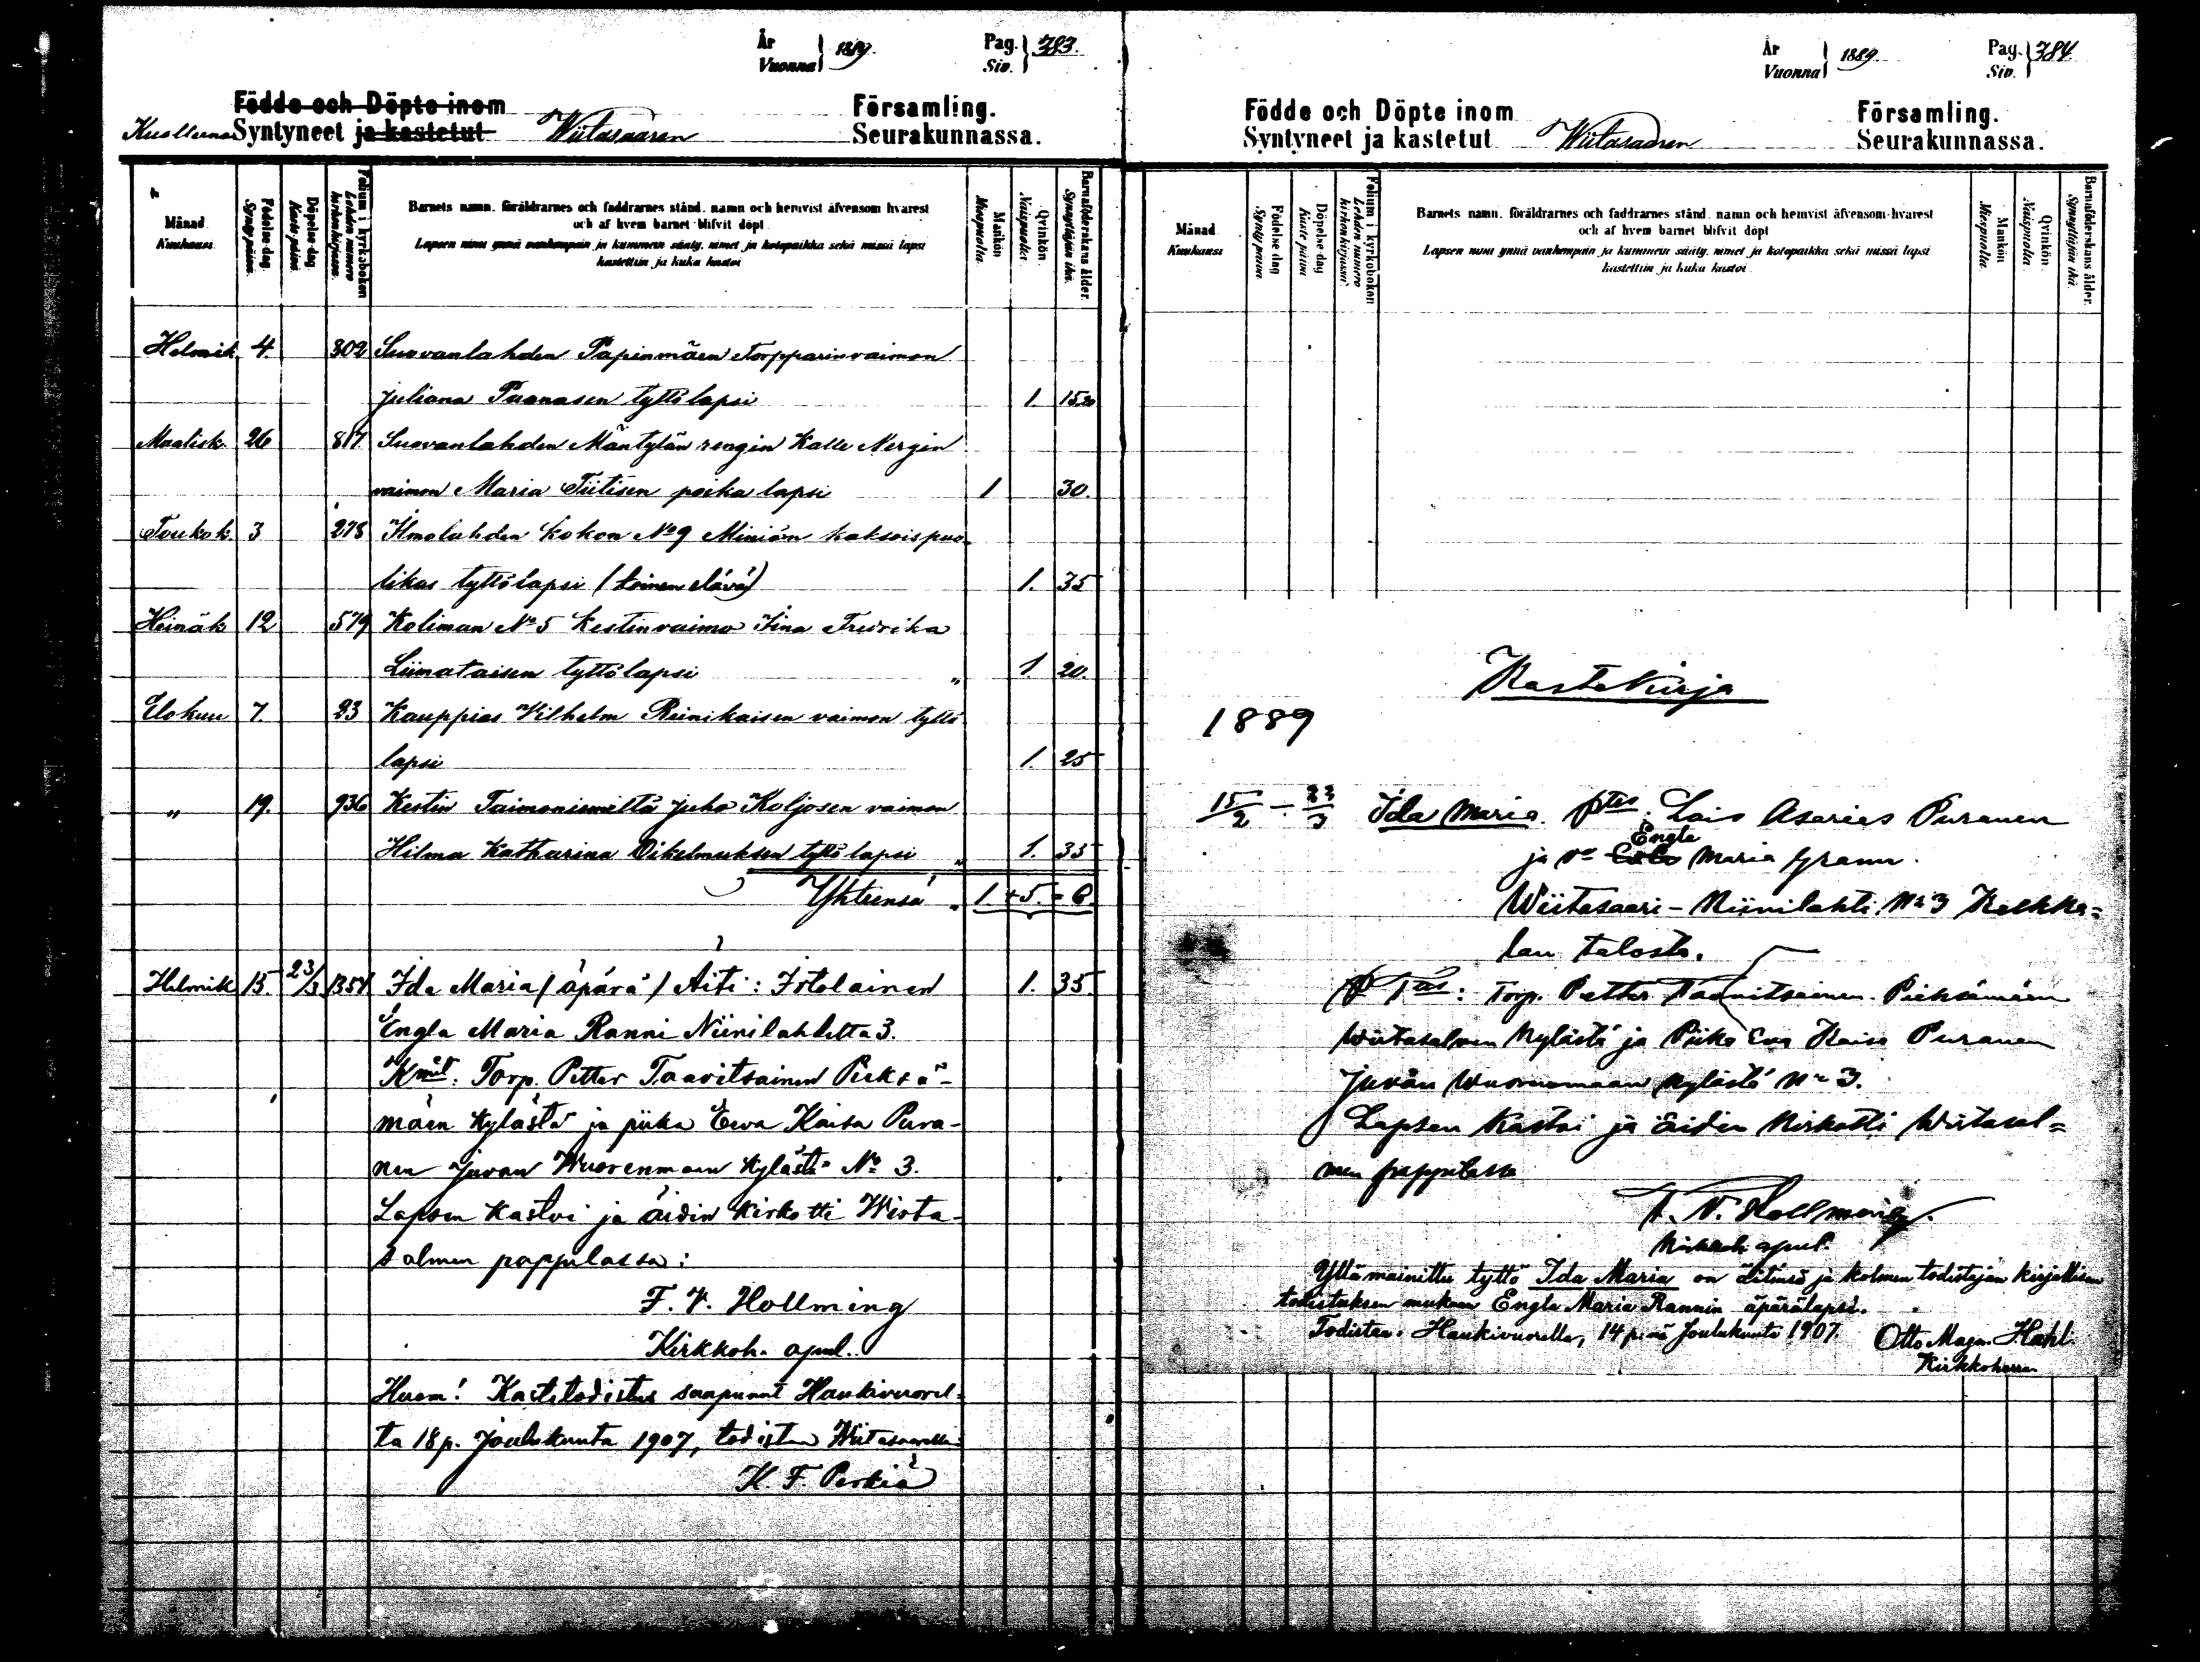 År
Vuonna } 1889. Pag.
Siv. } 383.
Födde och Döpte inom Församling.
Kuolleena Syntyneet ja kastetut Wiitasaaren Seurakunnassa.
Månad
Kuukausi
Födelse-dag.
Synty-päivä.
Döpelse-dag.
Kaste-päivä.
Folium i kyrkoboken
Lehden numero
kirkonkirjassa.
Barnets namn, föräldrarnes och faddrarnes stånd, namn och hemvist äfvensom hvarest
och af hvem barnet blifvit döpt
Lapsen nimi ynnä vanhempain ja kummein sääty, nimet ja kotopaikka sekä missä lapsi
kastettiin ja kuka kastoi
Mankön
Miespuolia.
Qvinkön.
Naispuolia.
Barnaföderskans ålder.
Synnyttäjän ikä.
Helmik. 4. 302 Suovanlahden Papinmäen Torpparinvaimon
Juliana Puranasen tyttölapsi 1.
Maalisk. 26 817 Suovanlahden Mäntylän rengin Kalle Nergin
vaimon Maria Tiitisen poika lapsi 1 30.
Toukok. 3 278 Ilmolahden Kokon No 9 Miniän kaksoispuo-
likas tyttölapsi (toinen elävä) 1. 35
Heinäk 12 579 Koliman No 5 Kestinvaimo Iina Fredrika
Liimataisen tyttölapsi " 1 20.
Elokuu 7. 23 Kauppias Vilhelm Reinikaisen vaimon tyttö
lapsi 1. 25
" 19. 936 Kestin Taimoniemeltä Juho Koljosen vaimon
Hilma Katharina Oikelmuksen tyttö lapsi " 1. 35
Yhteensä " 1. + 5. = 6.
Helmik 15. 23/3 1354 Ida Maria (äpärä) Äiti: Itellainen 1. 35.
Engla Maria Ranni Niinilahdelta 3.
Kmit: Torp. Petter Taavitsainen Pieksä-
mäen kylästä ja piika Eeva Kaisa Pura-
nen Juvan Wuorenmaan kylästä No 3.
Lapsen kastoi ja äidin kirkotti Wirta-
salmen pappilassa:
F. V. Hollming
Kirkkoh. apul.
Huom! Kastetodistus saapunut Haukivuorel-
ta 18 p. Joulukuuta 1907, todistaa Wiitasaarella:
K. F. Perkiä
År
Vuonna } 1889. Pag.
Siv. } 384.
Födde och Döpte inom Församling.
Syntyneet ja kastetut Wiitasaaren Seurakunnassa.
Månad
Kuukausi
Födelse dag
Synty päivä
Döpelse-dag
Kaste-päivä
Folium i kyrkoboken
Lehden numero
kirkonkirjassa
Barnets namn, föräldrarnes och faddrarnes stånd, namn och hemvist äfvensom hvarest
och af hvem barnet blifvit döpt
Lapsen nimi ynnä vanhempain ja kummein sääty, nimet ja kotopaikka sekä missä lapsi
kastettiin ja kuka kastoi
Mankön
Miespuolia.
Qvinkön.
Naispuolia.
Barnaföderskans ålder.
Synnyttäjän ikä.
Kastekirja
1889
15/2 – 23/3 Ida Maria. Lois Asarias Puranen
Engla
ja Maria Grann.
Wiitasaari – Niinilahti No 3 Kalkka=
lan talosta.
Torp. Petter Taavitsainen Pieksämäen
Wirtasalmen kylästä ja Piika Eva Kaisa Puranen
Juvan Wuorenmaan kylästä No 3.
Lapsen kastoi ja äidin kirkotti Wirtasal=
men pappilassa
F. V. Hollming.
Kirkkoh apul.
Yllämainittu tyttö Ida Maria on äitinsä ja kolmen todistajan kirjallisen
todistuksen mukaan Engla Maria Rannin äpärälapsi.
Todistaa. Haukivuorella, 14 p:nä Joulukuuta 1907. Otto Magn. Hahl
Kirkkoherra